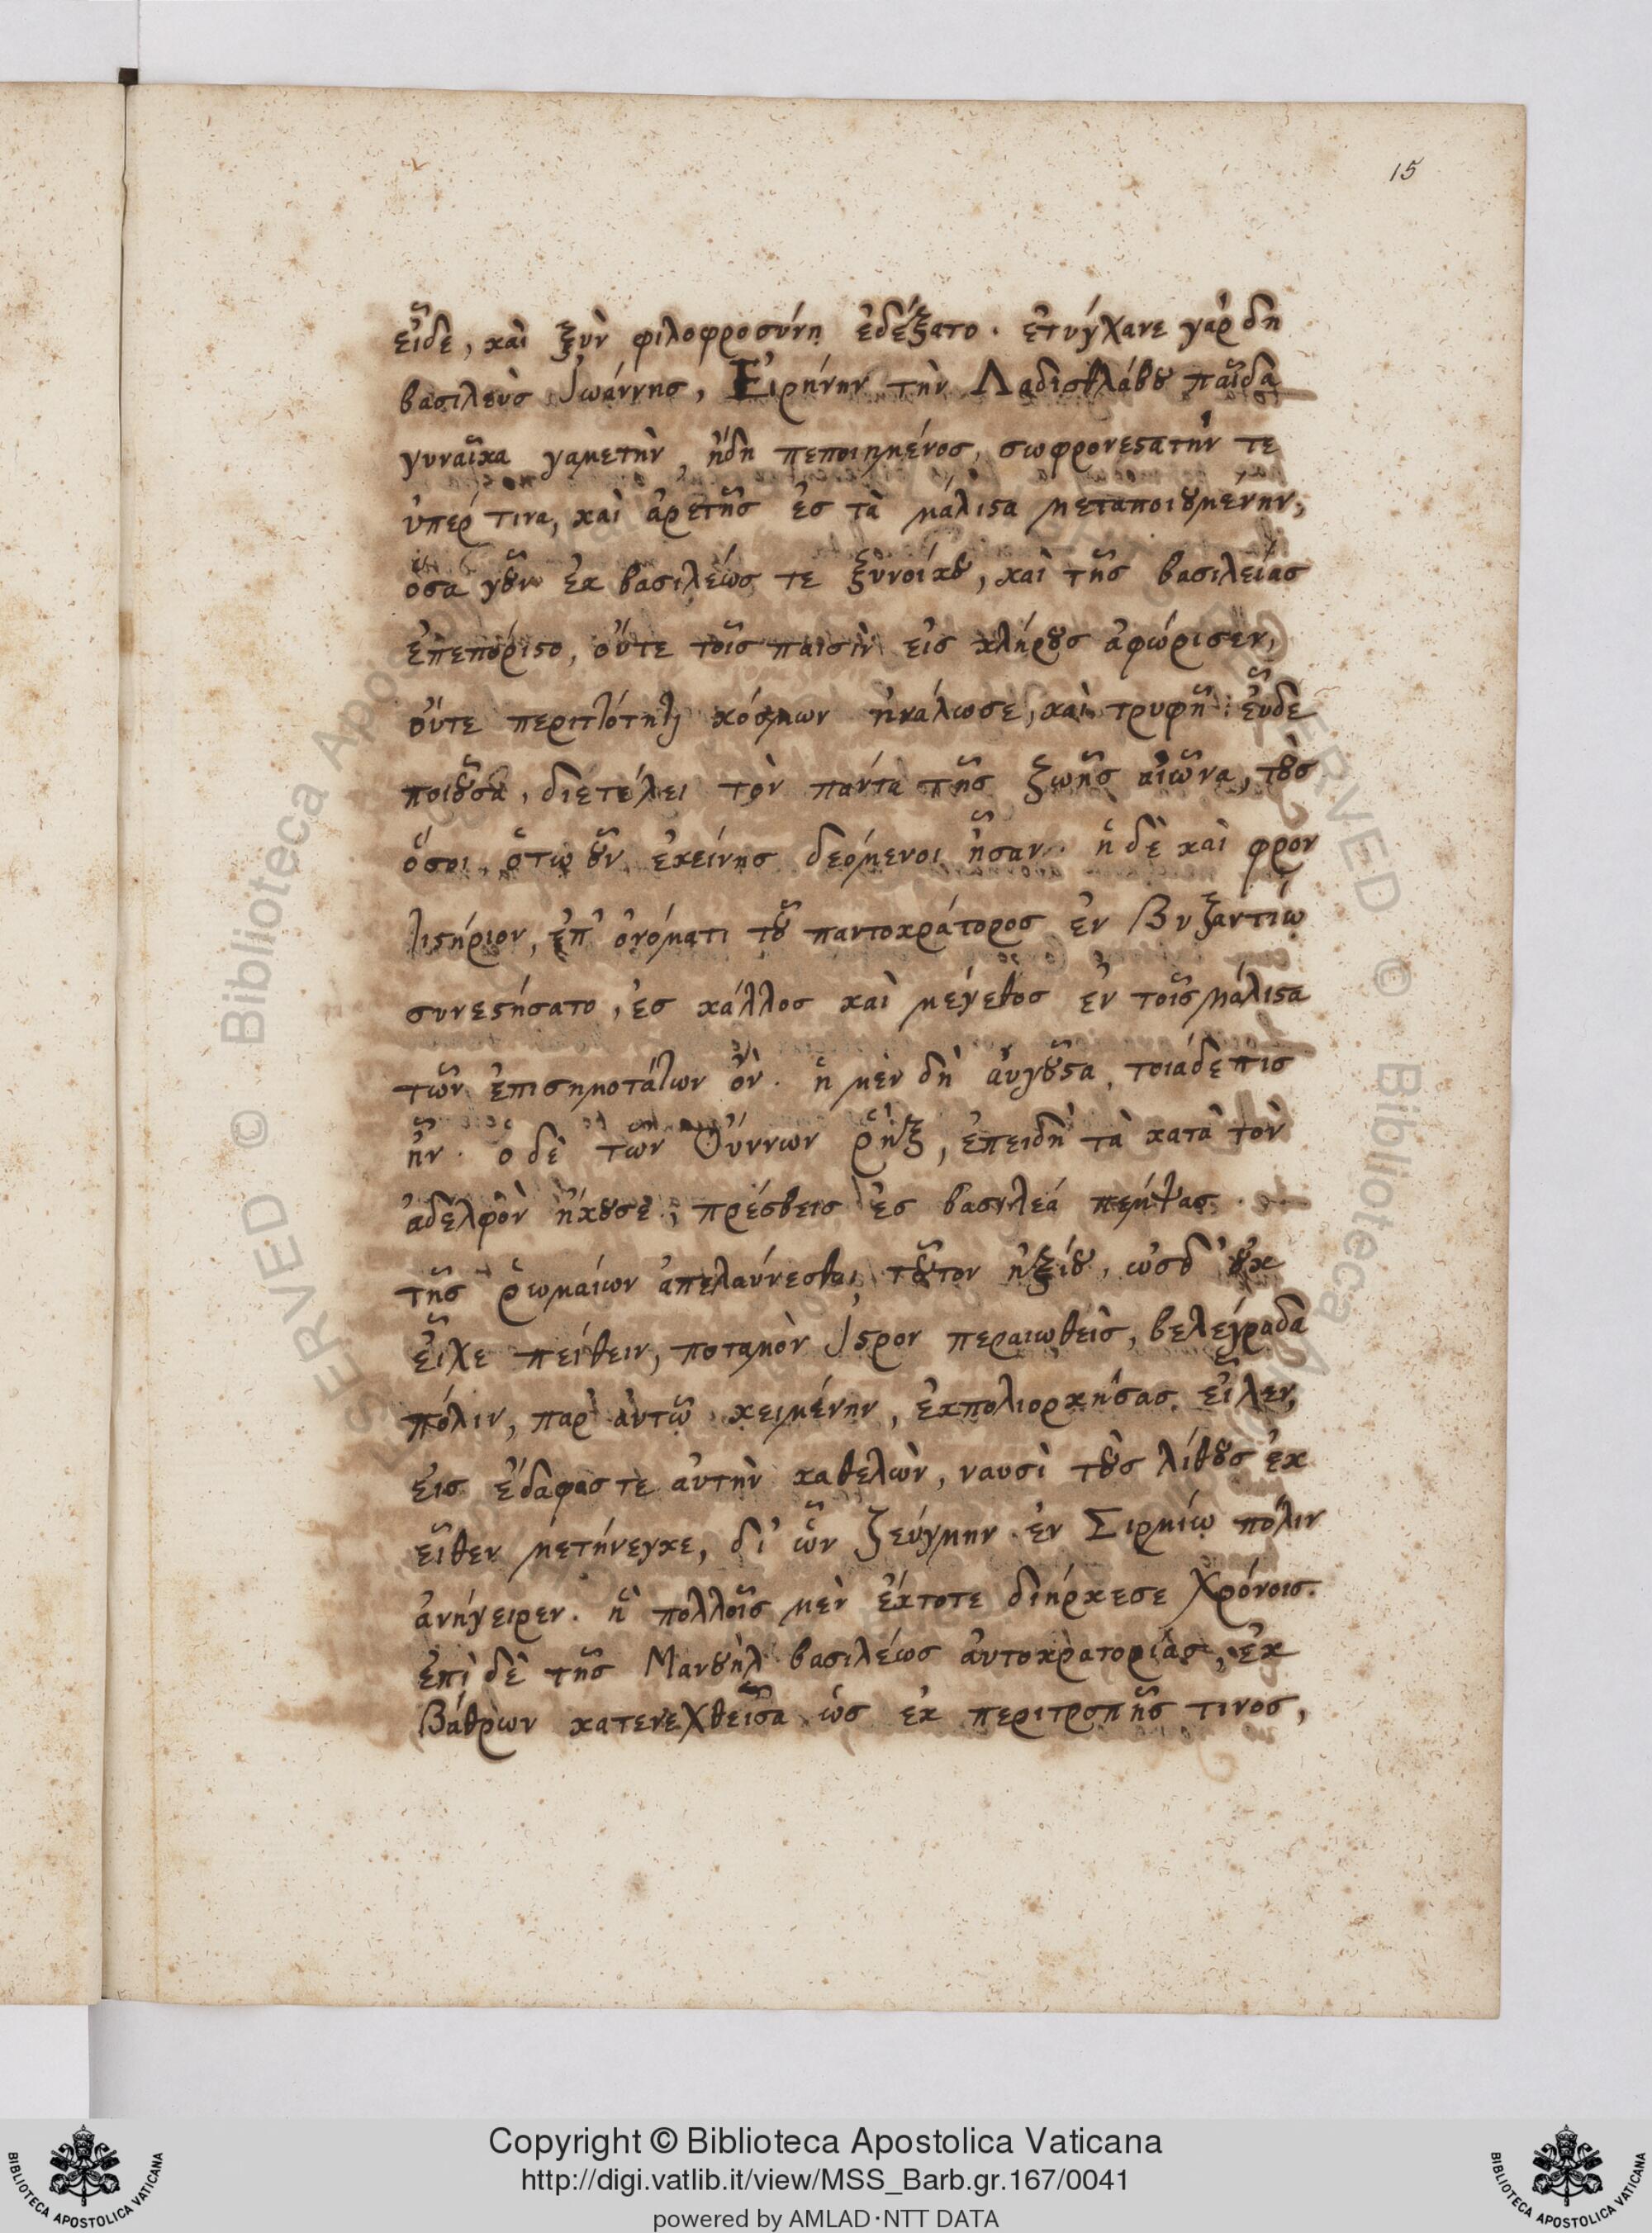 15
εἶδε, καὶ ξὺν φιλοφροσύνῃ ἐδέξατο. ἐτύγχανε γὰρ δὴ
βασιλεὺς Ἰωάννης, Εἰρήνην τὴν Λαδισθλάβου παῖδα
γυναῖκα γαμετὴν, ἤδη πεποιημένος, σωφρονεστάτην τε
ὑπέρ τινα, καὶ ἀρετῆς ἐς τὰ μάλιστα μεταποιουμένην,
ὅσα γοῦν ἐκ βασιλέως τε ξυνοίκου, καὶ τῆς βασιλείας
ἐπεπόριστο, οὔτε τοῖς παισὶν εἰς κλήρους ἀφώρισεν,
οὔτε περιττότητι κόσμων ἠνάλωσε, καὶ τρυφῇ· εὖ δὲ
ποιοῦσα, διετέλει τὸν πάντα τῆς ζωῆς αἰῶνα, τοὺς
ὅσοι, ὅτῳ οὖν ἐκείνης δεόμενοι ἦσαν. ἣ δὲ καὶ φρον
τιστήριον, ἐπ' ὀνόματι τοῦ παντοκράτορος ἐν Βυζαντίῳ
συνεστήσατο, ἐς κάλλος καὶ μέγεθος ἐν τοῖς μάλιστα
τῶν ἐπισημοτάτων ὄν. ἡ μὲν δὴ αὐγοῦστα, τοιάδε τις
ἦν. ὁ δὲ τῶν Οὔννων ῥὴξ, ἐπειδὴ τὰ κατὰ τὸν
ἀδελφὸν ἤκουσε, πρέσβεις ἐς βασιλέα πέμψας
τῆς ῥωμαίων ἀπελαύνεσθαι τοῦτον ἠξίου, ὡς δ' οὐκ
εἶχε πείθειν, ποταμὸν Ἴστρον περαιωθεὶς, βελέγραδα
πόλιν, παρ' αὐτῷ κειμένην, ἐκπολιορκήσας εἷλεν,
εἰς ἔδαφός τε αὐτὴν καθελὼν, ναυσὶ τοὺς λίθους ἐκ
εῖθεν μετήνεγκε, δι' ὧν Ζεύγμην ἐν Σιρμίῳ πόλιν
ἀνήγειρεν. ἣ πολλοῖς μὲν ἔκτοτε διήρκεσε χρόνοις.
ἐπὶ δὲ τῆς Μανουὴλ βασιλέως αὐτοκρατορίας, ἐκ
βάθρων κατενεχθεῖσα ὡς ἐκ περιτροπῆς τινος,
Copyright © Biblioteca Apostolica Vaticana
http://digi.vatlib.it/view/MSS_Barb.gr.167/0041
powered by AMLAD·NTT DATA
BIBLIOTECA APOSTOLICA VATICANA
BIBLIOTECA APOSTOLICA VATICANA